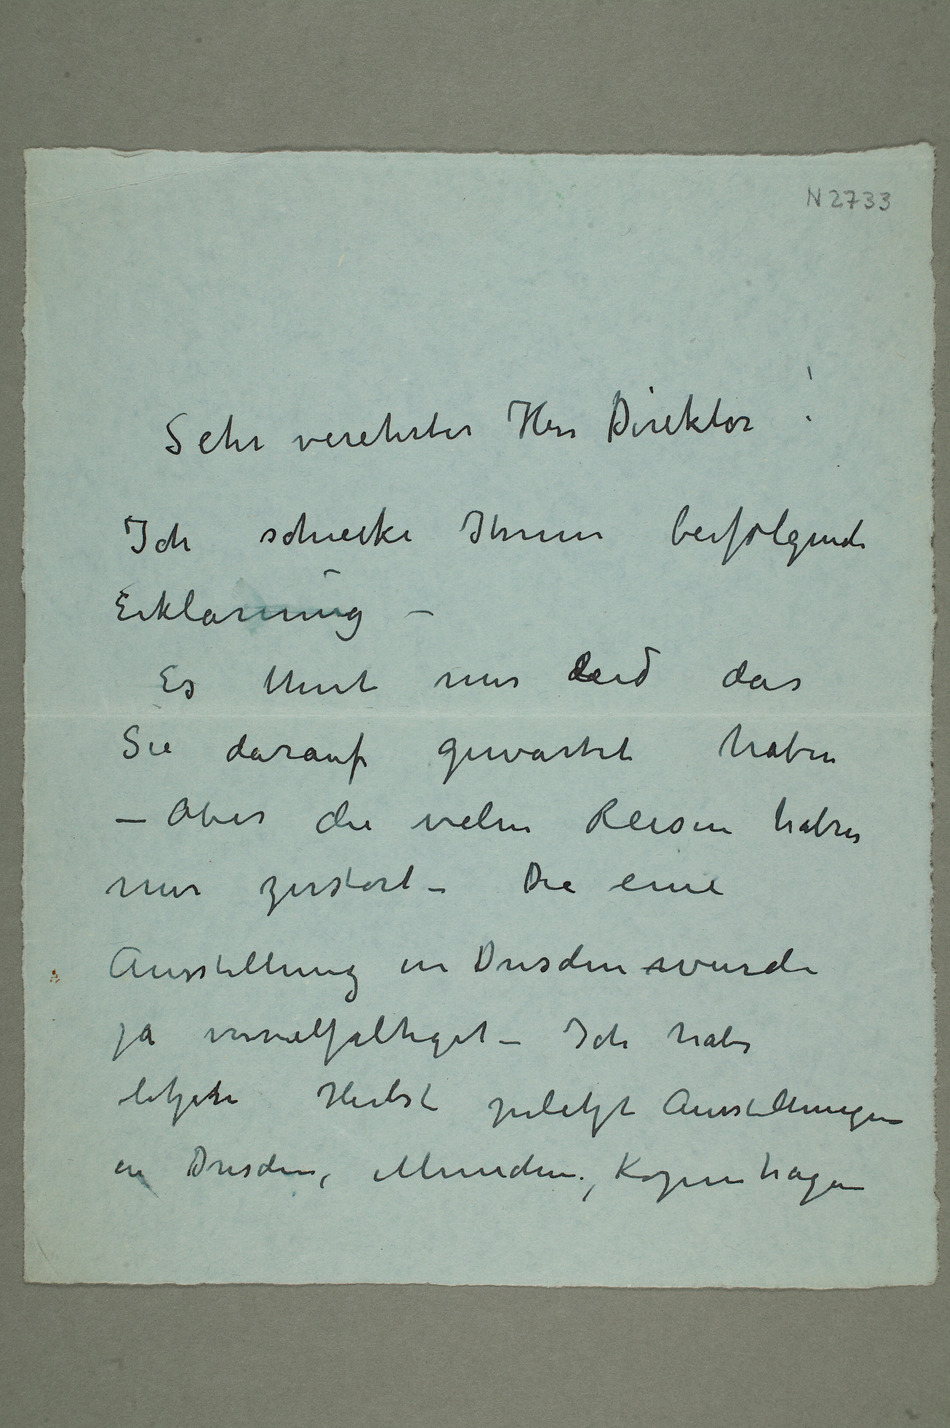 N 2733
Sehr verehrter Herr Direktor !
Ich schicke Ihnen beifolgende
Erklärung –
Es thut mir leid das
Sie darauf gewartet haben
– Aber die vielen Reisen haben
mir zerstört – Die eine
Ausstellung in Dresden wurde
ja vervielfältiget – Ich habe
letzten Herbst Ausstellungen
in Dresden, München, Kopenhagen